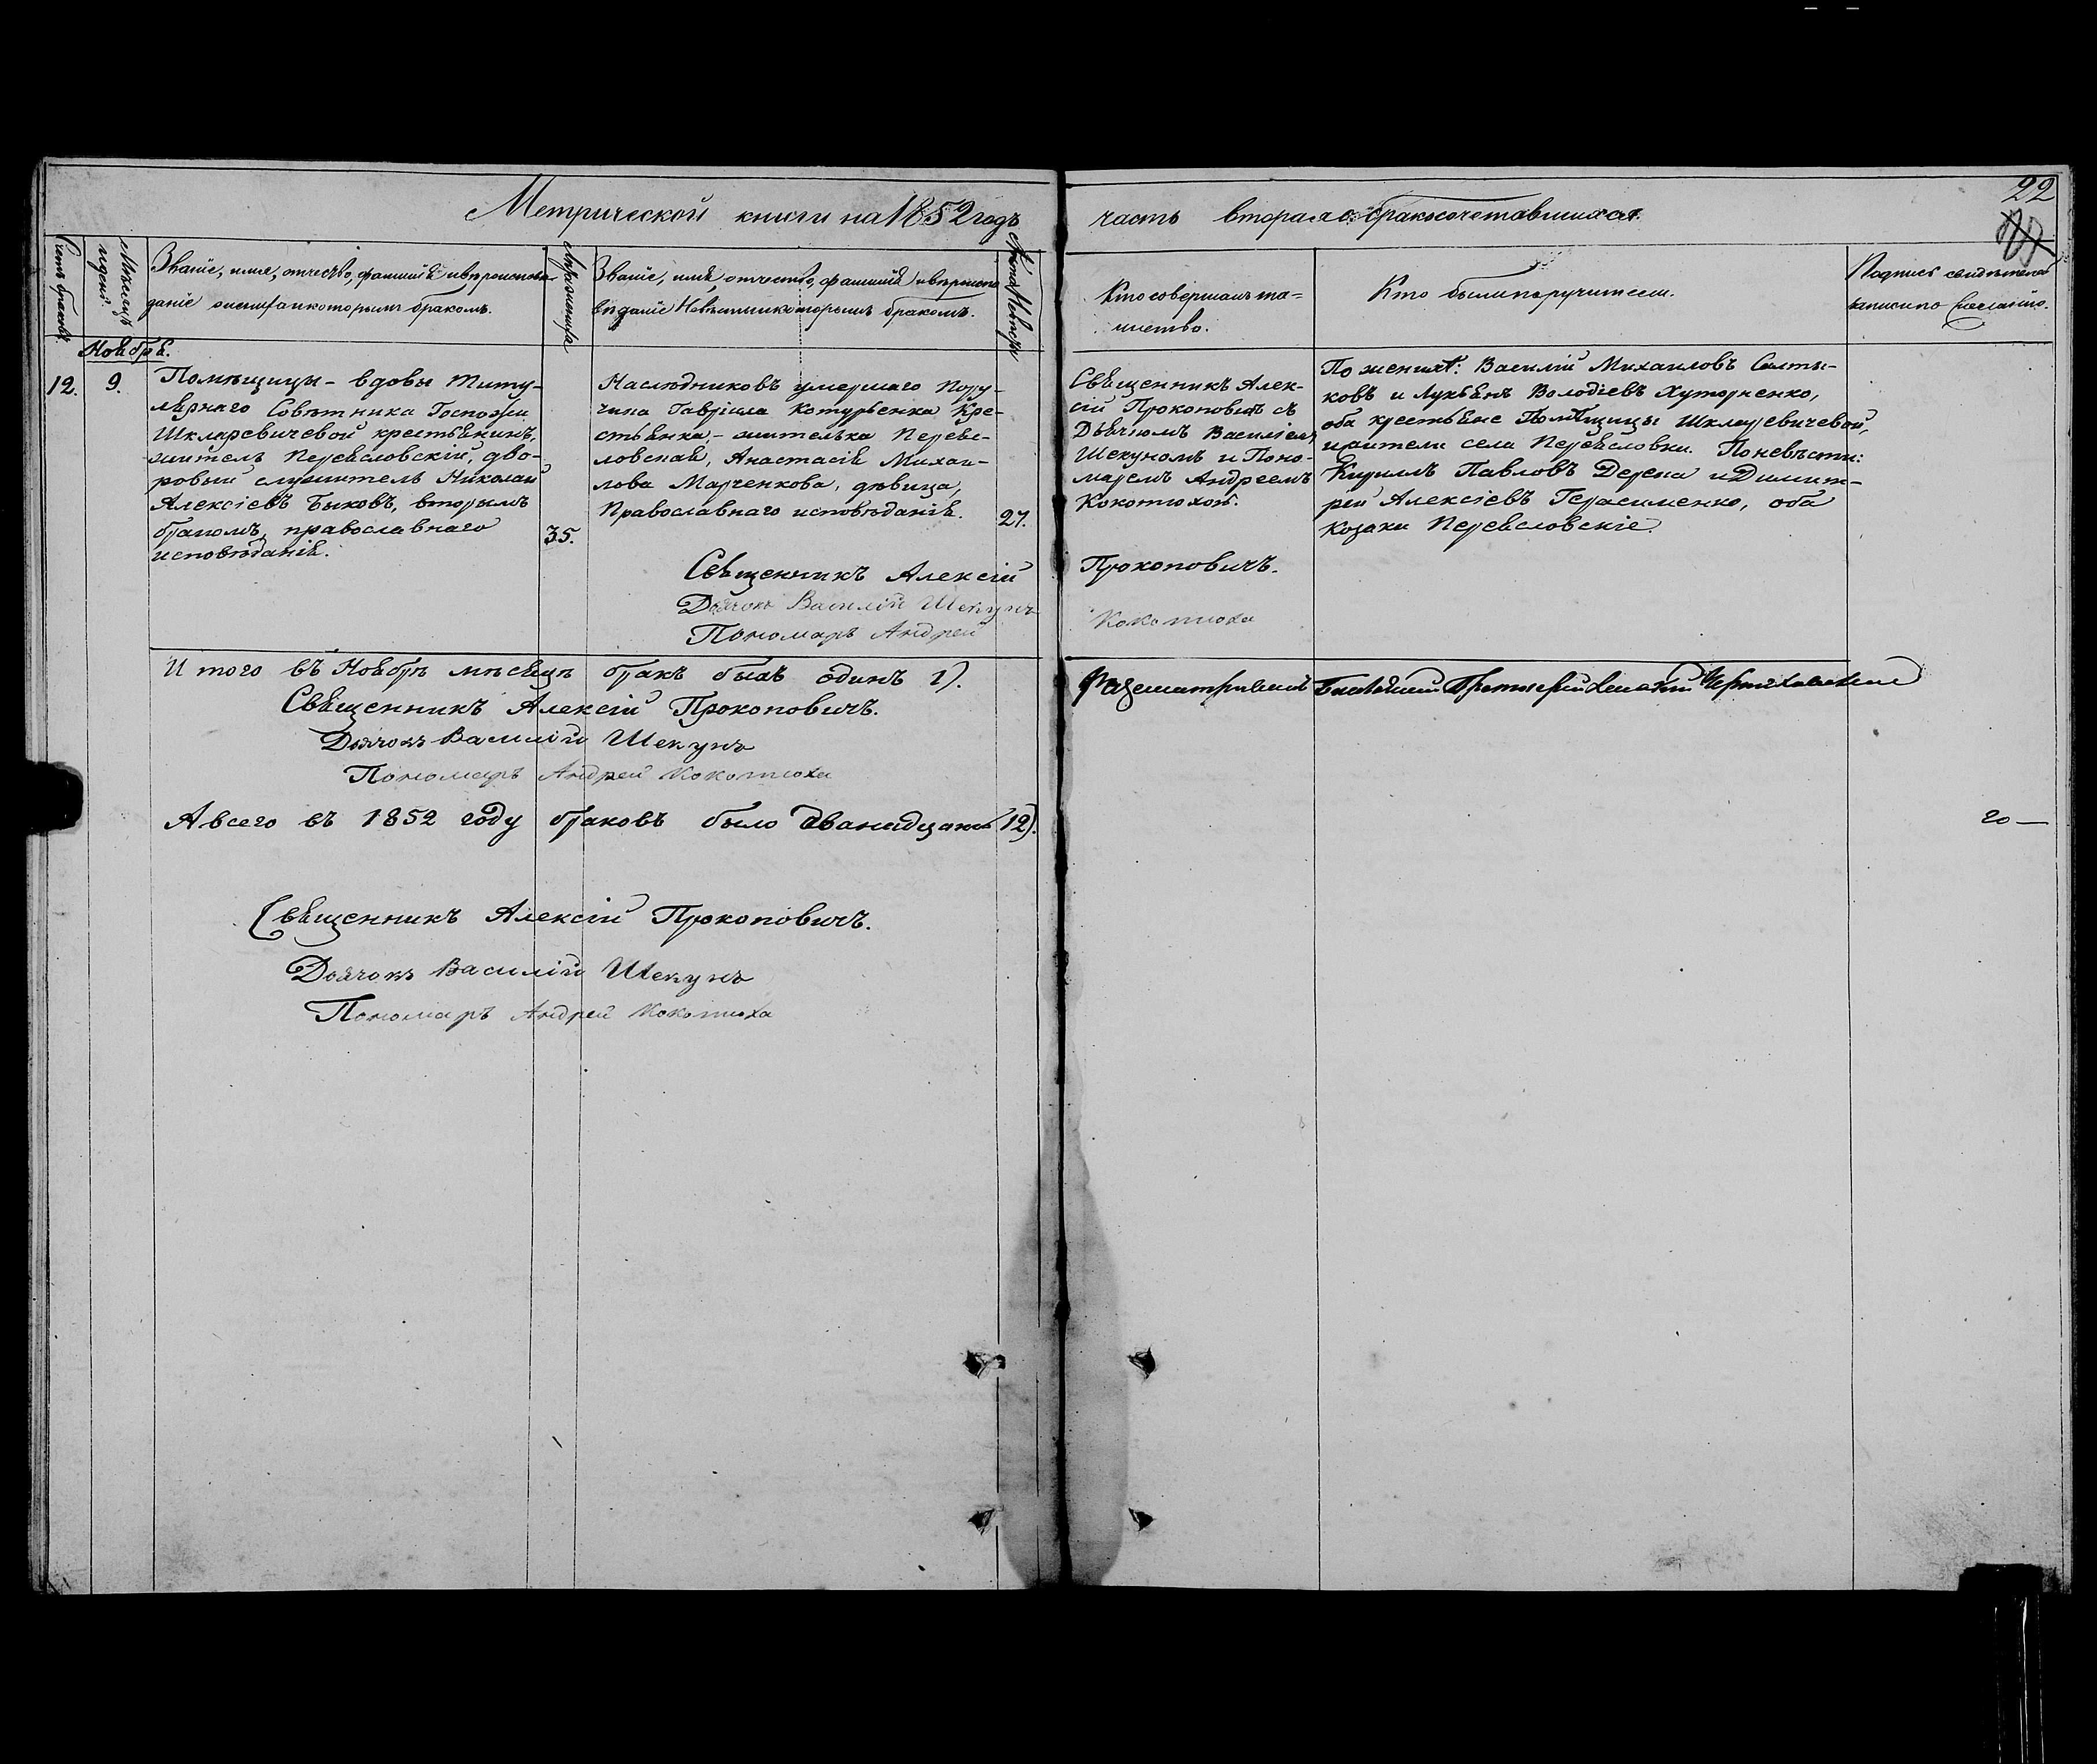 22
Метрической книги на 1852 годъ часть вторая о бракосочетавшихся.
Счетъ браковъ
Мѣсяцъ и день.
Званіе, имя, отчество, фамилія и вѣроисповѣ-
даніе жениха и которымъ бракомъ.
Лѣта жениха
Званіе, имя, отчество, фамилія и вѣроиспо-
вѣданіе Невѣсты и которымъ бракомъ.
Лѣта Невѣсты
Кто совершалъ та=
инство.
Кто были поручители.
Подпись свидѣтелей
записи по желанію.
Ноябрь.
12.
9.
Помѣщицы - вдовы Титу-
лярнаго Совѣтника Госпожи
Шкляревичевой крестьянинъ,
житель Переясловскій, дво-
ровый служитель Николай
Алексіевъ Быковъ, вторымъ
бракомъ, православнаго
исповѣданія.
35.
Наслѣдниковъ умершаго Пору-
чика Гавріила Котурбенка Кре-
стьянка, - жителька Переяс-
ловская, Анастасія Михаи-
лова Марченкова, дѣвица,
Православнаго исповѣданія.
27.
Священникъ Алек-
сій Прокоповичъ съ
Дьячкомъ Василіемъ
Шекуномъ и Поно-
маремъ Андреемъ
Кокотюхой.
По женихѣ: Василій Михаиловъ Салты-
ковъ и Лукьянъ Володіевъ Хуторненко,
оба крестьяне Помѣщицы Шкляревичевой,
жители села Переясловки. По невѣсти:
Кириллъ Павловъ Дереча и Димит-
рій Алексіевъ Герасименко, оба
козаки Переясловскіе.
Священникъ Алексій Прокоповичъ.
Дьячокъ Василій Шекунъ
Пономарь Андрей Кокотюха
Итого въ Ноябрѣ мѣсяцѣ бракъ былъ одинъ 1).
Священникъ Алексій Прокоповичъ.
Дьячокъ Василій Шекунъ
Пономарь Андрей Кокотюха
Разсматривалъ Благочинный Протоіерей
А всего въ 1852 году браковъ было дванадцать 12).
20 —
Священникъ Алексій Прокоповичъ.
Дьячокъ Василій Шекунъ
Пономарь Андрей Кокотюха